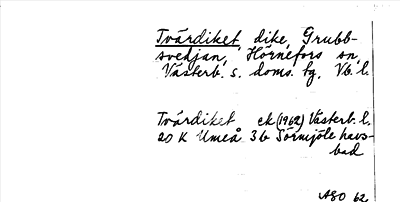 Tvärdiket, dike, Grubb-
svedjan, Hörnefors sn,
Västerb. s. doms. tg. Vb. l.
Tvärdiket ek (1962) Västerb. l.
20 K Umeå 3b Sörmjöle havs-
bad
ASO 62